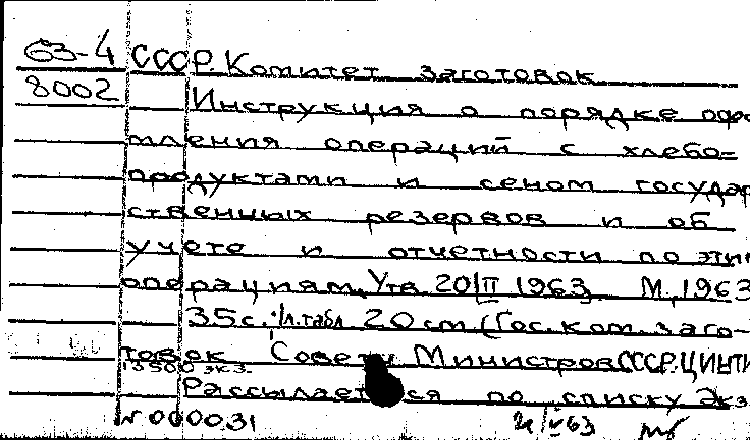 63-4 СССР. Комитет заготовок
8002 Инструкция о порядке офо
мления операций с хлебо-
продуктами и сеном государ
ственных резервов и об
учете и отчетности по этим
операциям. Утв. 20/II 1963 М., 1963
35 с. табл 20 см (Гос. ком. заго-
товок Совета Министров СССР. ЦИНТИ
13500 экз.
Рассылается по списку Экз.
№ 000031 63